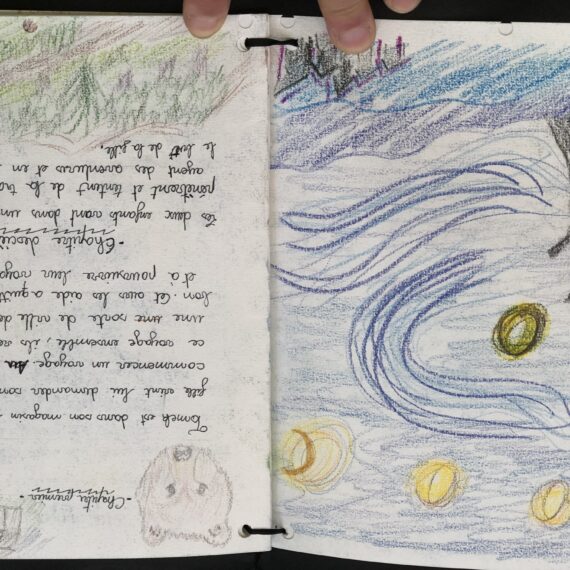 -Chapitre premier-
Tomek est dans son magasin
fille vient lui demander son
commencer un voyage.
ce voyage ensemble, ils se
une sorte de ville de
bon. Cet ours les aide a quitt
et à poursuivre leur voyag
-Chapitre deuxiè
Les deux enfants vont dans un
pénètrent et tentent de la tra
ayent des aventures et en
le but de la fille.